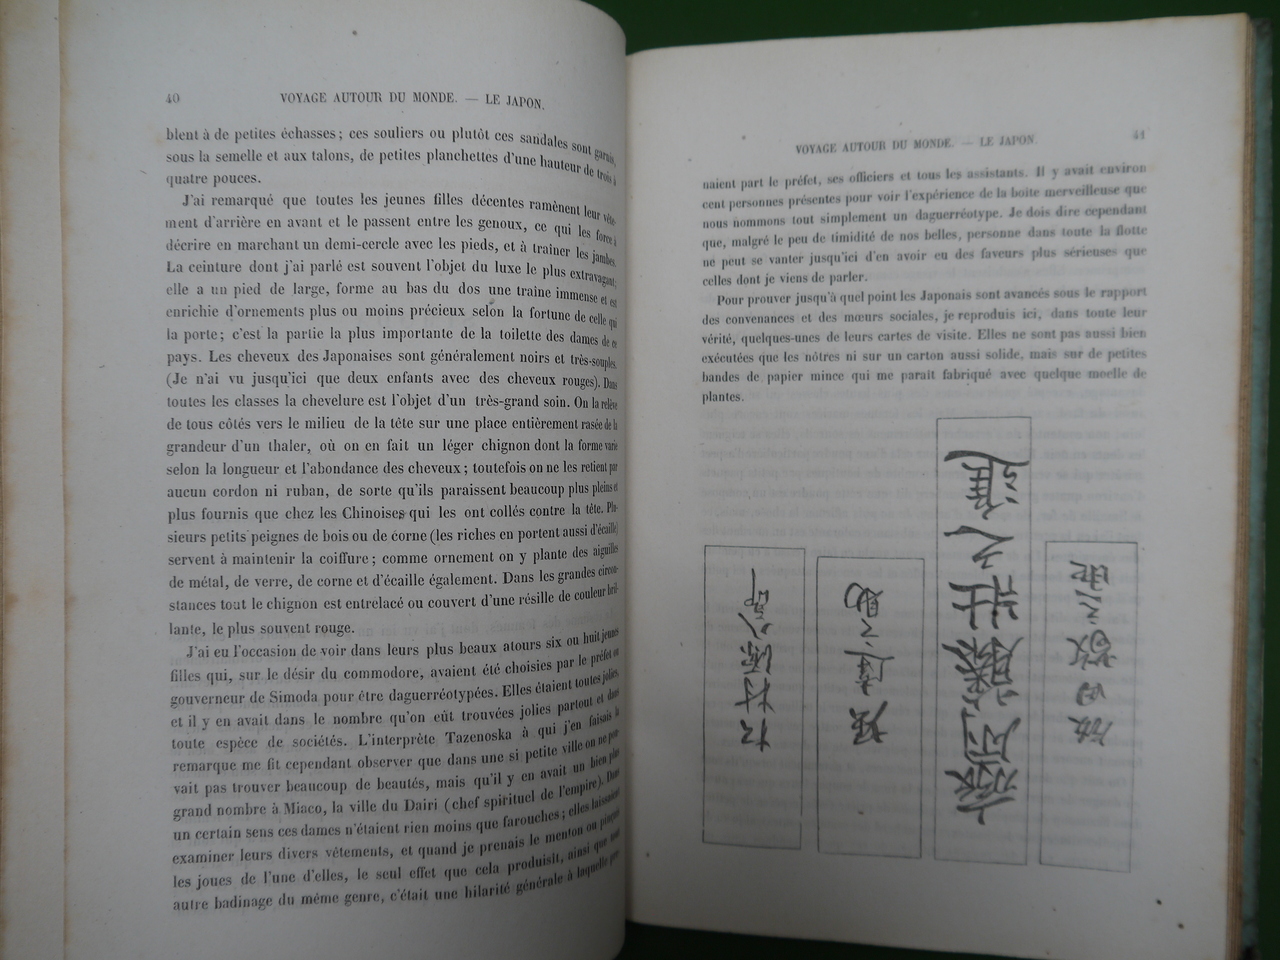 40 VOYAGE AUTOUR DU MONDE. — LE JAPON.
blent à de petites échasses; ces souliers ou plutôt ces sandales sont garnis,
sous la semelle et aux talons, de petites planchettes d'une hauteur de trois à
quatre pouces.
J'ai remarqué que toutes les jeunes filles décentes ramènent leur vête-
ment d'arrière en avant et le passent entre les genoux, ce qui les force à
décrire en marchant un demi-cercle avec les pieds, et à traîner les jambes.
La ceinture dont j'ai parlé est souvent l'objet du luxe le plus extravagant;
elle a un pied de large, forme au bas du dos une traîne immense et est
enrichie d'ornements plus ou moins précieux selon la fortune de celle qui
la porte; c'est la partie la plus importante de la toilette des dames de ce
pays. Les cheveux des Japonaises sont généralement noirs et très-souples.
(Je n'ai vu jusqu'ici que deux enfants avec des cheveux rouges). Dans
toutes les classes la chevelure est l'objet d'un très-grand soin. On la relève
de tous côtés vers le milieu de la tête sur une place entièrement rasée de la
grandeur d'un thaler, où on en fait un léger chignon dont la forme varie
selon la longueur et l'abondance des cheveux; toutefois on ne les retient par
aucun cordon ni ruban, de sorte qu'ils paraissent beaucoup plus pleins et
plus fournis que chez les Chinoises qui les ont collés contre la tête. Plu-
sieurs petits peignes de bois ou de corne (les riches en portent aussi d'écaille)
servent à maintenir la coiffure; comme ornement on y plante des aiguilles
de métal, de verre, de corne et d'écaille également. Dans les grandes circon-
stances tout le chignon est entrelacé ou couvert d'une résille de couleur bril-
lante, le plus souvent rouge.
J'ai eu l'occasion de voir dans leurs plus beaux atours six ou huit jeunes
filles qui, sur le désir du commodore, avaient été choisies par le préfet ou
gouverneur de Simoda pour être daguerréotypées. Elles étaient toutes jolies,
et il y en avait dans le nombre qu'on eût trouvées jolies partout et dans
toute espèce de sociétés. L'interprète Tazenoska à qui j'en faisais la
remarque me fit cependant observer que dans une si petite ville on ne pou-
vait pas trouver beaucoup de beautés, mais qu'il y en avait un bien plus
grand nombre à Miaco, la ville du Dairi (chef spirituel de l'empire). Dans
un certain sens ces dames n'étaient rien moins que farouches; elles laissaient
examiner leurs divers vêtements, et quand je prenais le menton ou pinçais
les joues de l'une d'elles, le seul effet que cela produisît, ainsi que tout
autre badinage du même genre, c'était une hilarité générale à laquelle pre-
VOYAGE AUTOUR DU MONDE. — LE JAPON. 41
naient part le préfet, ses officiers et tous les assistants. Il y avait environ
cent personnes présentes pour voir l'expérience de la boîte merveilleuse que
nous nommons tout simplement un daguerréotype. Je dois dire cependant
que, malgré le peu de timidité de nos belles, personne dans toute la flotte
ne peut se vanter jusqu'ici d'en avoir eu des faveurs plus sérieuses que
celles dont je viens de parler.
Pour prouver jusqu'à quel point les Japonais sont avancés sous le rapport
des convenances et des mœurs sociales, je reproduis ici, dans toute leur
vérité, quelques-unes de leurs cartes de visite. Elles ne sont pas aussi bien
exécutées que les nôtres ni sur un carton aussi solide, mais sur de petites
bandes de papier mince qui me paraît fabriqué avec quelque moelle de
plantes.